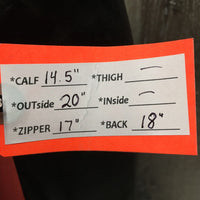 *CALF 14.5" *THIGH —
*OUTside 20" *INside —
*ZIPPER 17" *BACK 18"